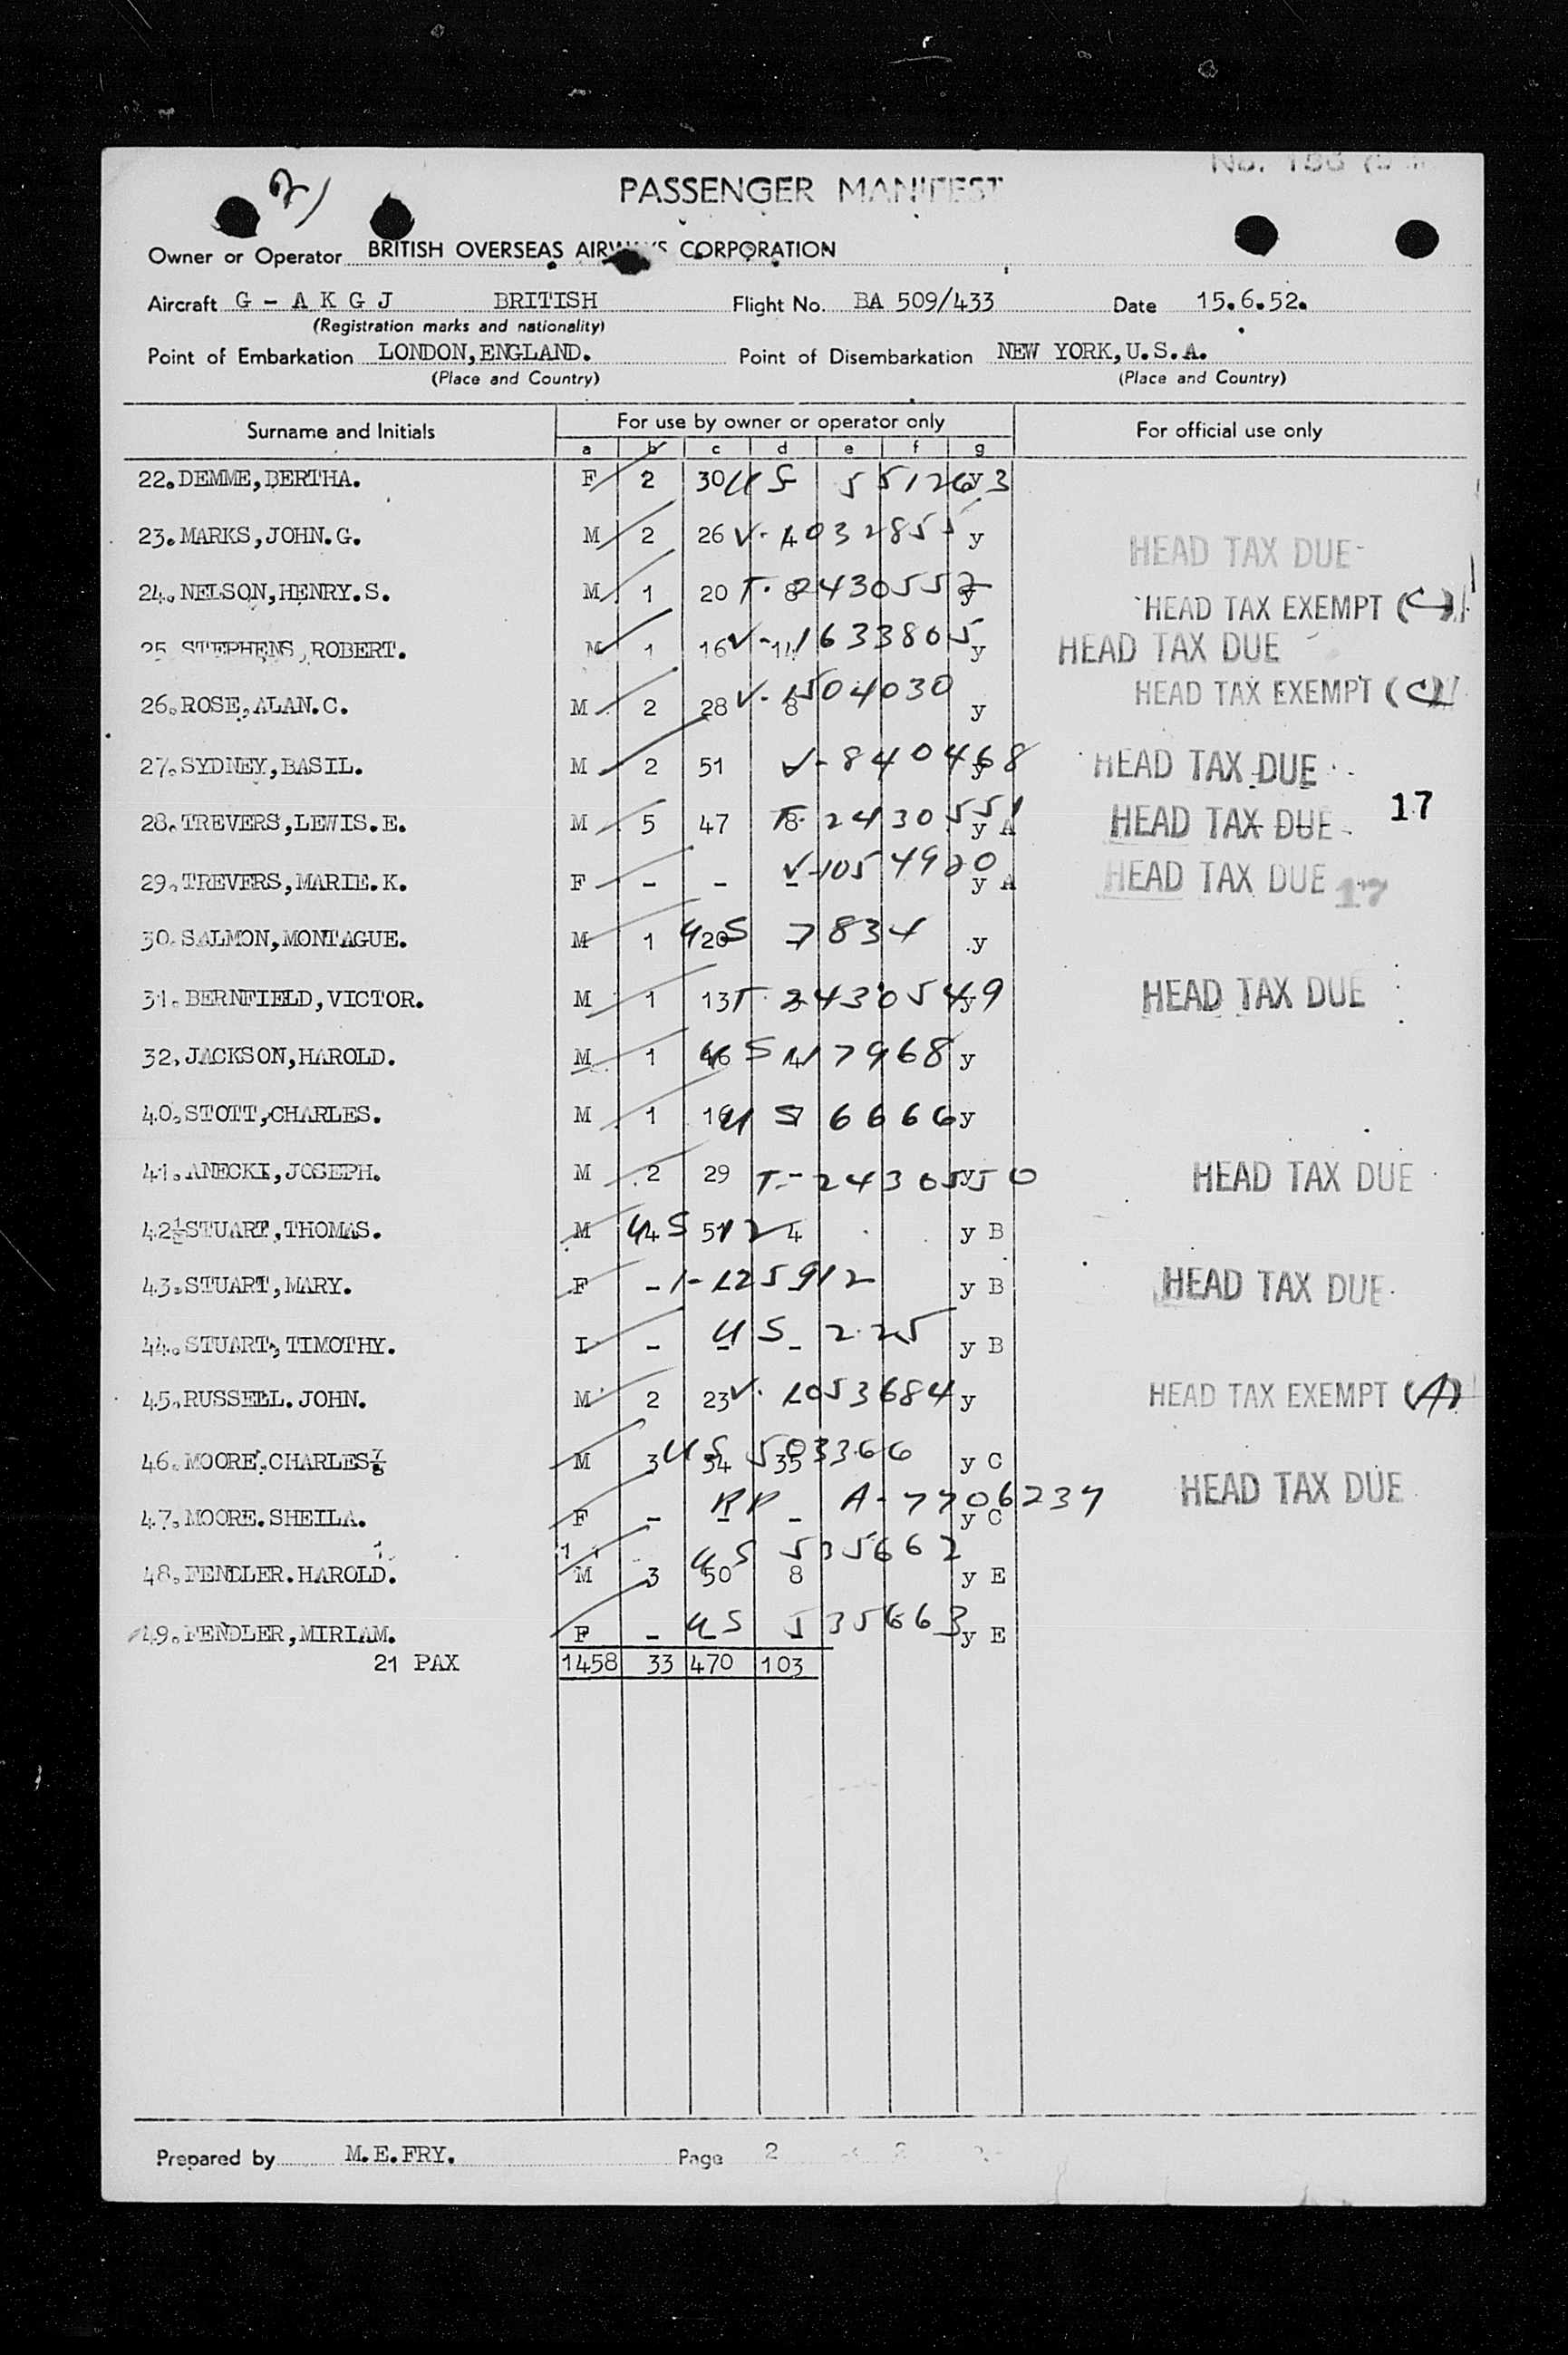 2)
PASSENGER MANIFEST
Owner or Operator BRITISH OVERSEAS AIRWAYS CORPORATION
Aircraft G - A K G J BRITISH Flight No. BA 509/433 Date 15.6.52.
(Registration marks and nationality)
Point of Embarkation LONDON,ENGLAND. Point of Disembarkation NEW YORK,U.S.A.
(Place and Country) (Place and Country)
Surname and Initials For use by owner or operator only For official use only
a b c d e f g
22.DEMME,BERTHA. F 2 30 US 551263 y
23.MARKS,JOHN.G. M 2 26 4 V-1032855 y HEAD TAX DUE
24.NELSON,HENRY.S. M 1 20 8 T-2430552 y HEAD TAX EXEMPT (C)
25 STEPHENS,ROBERT. M 1 16 14 V-1633805 y HEAD TAX DUE
26.ROSE,ALAN.C. M 2 28 8 V-1504030 y HEAD TAX EXEMPT (C)
27.SYDNEY,BASIL. M 2 51 V-840468 y HEAD TAX DUE
28.TREVERS,LEWIS.E. M 5 47 8 T-2430551 y A HEAD TAX DUE 17
29.TREVERS,MARIE.K. F - - - V-1054920 y A HEAD TAX DUE 17
30.SALMON,MONTAGUE. M 1 20 US 7834 y
31.BERNFIELD,VICTOR. M 1 13 T-2430549 y HEAD TAX DUE
32.JACKSON,HAROLD. M 1 16 4 US 117968 y
40.STOTT,CHARLES. M 1 16 US 6666 y
41.ANECKI,JOSEPH. M 2 29 - T-2430550 y HEAD TAX DUE
42½STUART,THOMAS. M 4 51 4 US 12 y B
43.STUART,MARY. F - I-125912 y B HEAD TAX DUE
44.STUART,TIMOTHY. I - - - US 225 y B
45.RUSSELL.JOHN. M 2 23 V-1053684 y HEAD TAX EXEMPT (A)
46.MOORE.CHARLES M 3 54 35 US 503366 y C
47.MOORE.SHEILA. F - - - RP A-7706237 y C HEAD TAX DUE
48.FENDLER.HAROLD. M 3 50 8 US 535662 y E
49.FENDLER,MIRIAM. F - - - US 535663 y E
21 PAX 1458 33 470 103
Prepared by M.E.FRY. Page 2